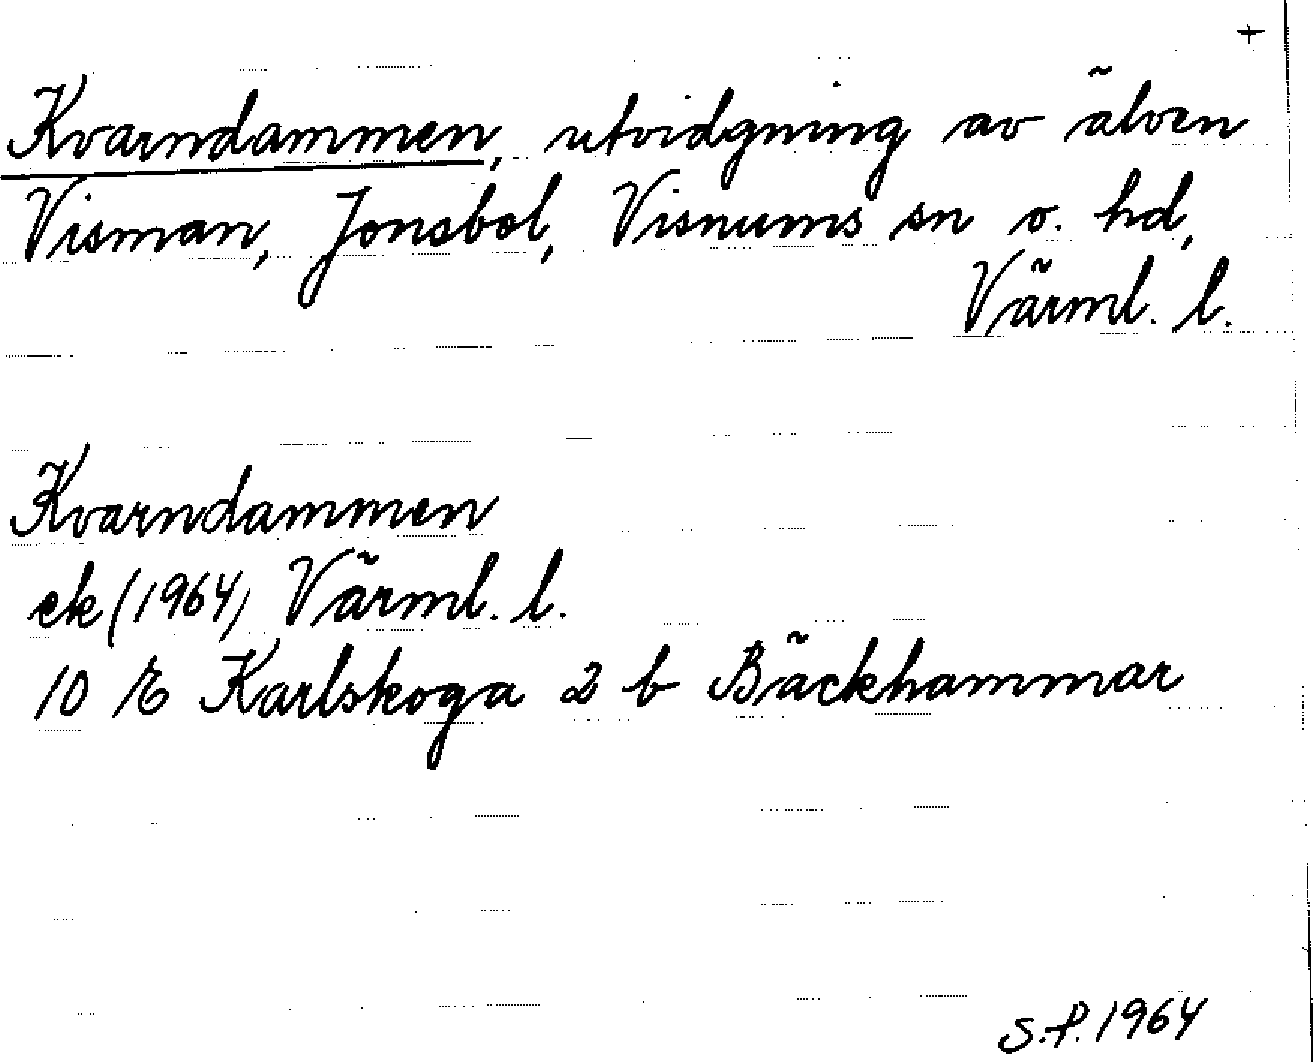 +
Kvarndammen, utvidgning av älven
Visman, Jonsbol, Visnums sn o. hd,
Värml. l.
Kvarndammen
ek (1964) Värml. l.
10 E Karlskoga 2 b Bäckhammar
S.P. 1964